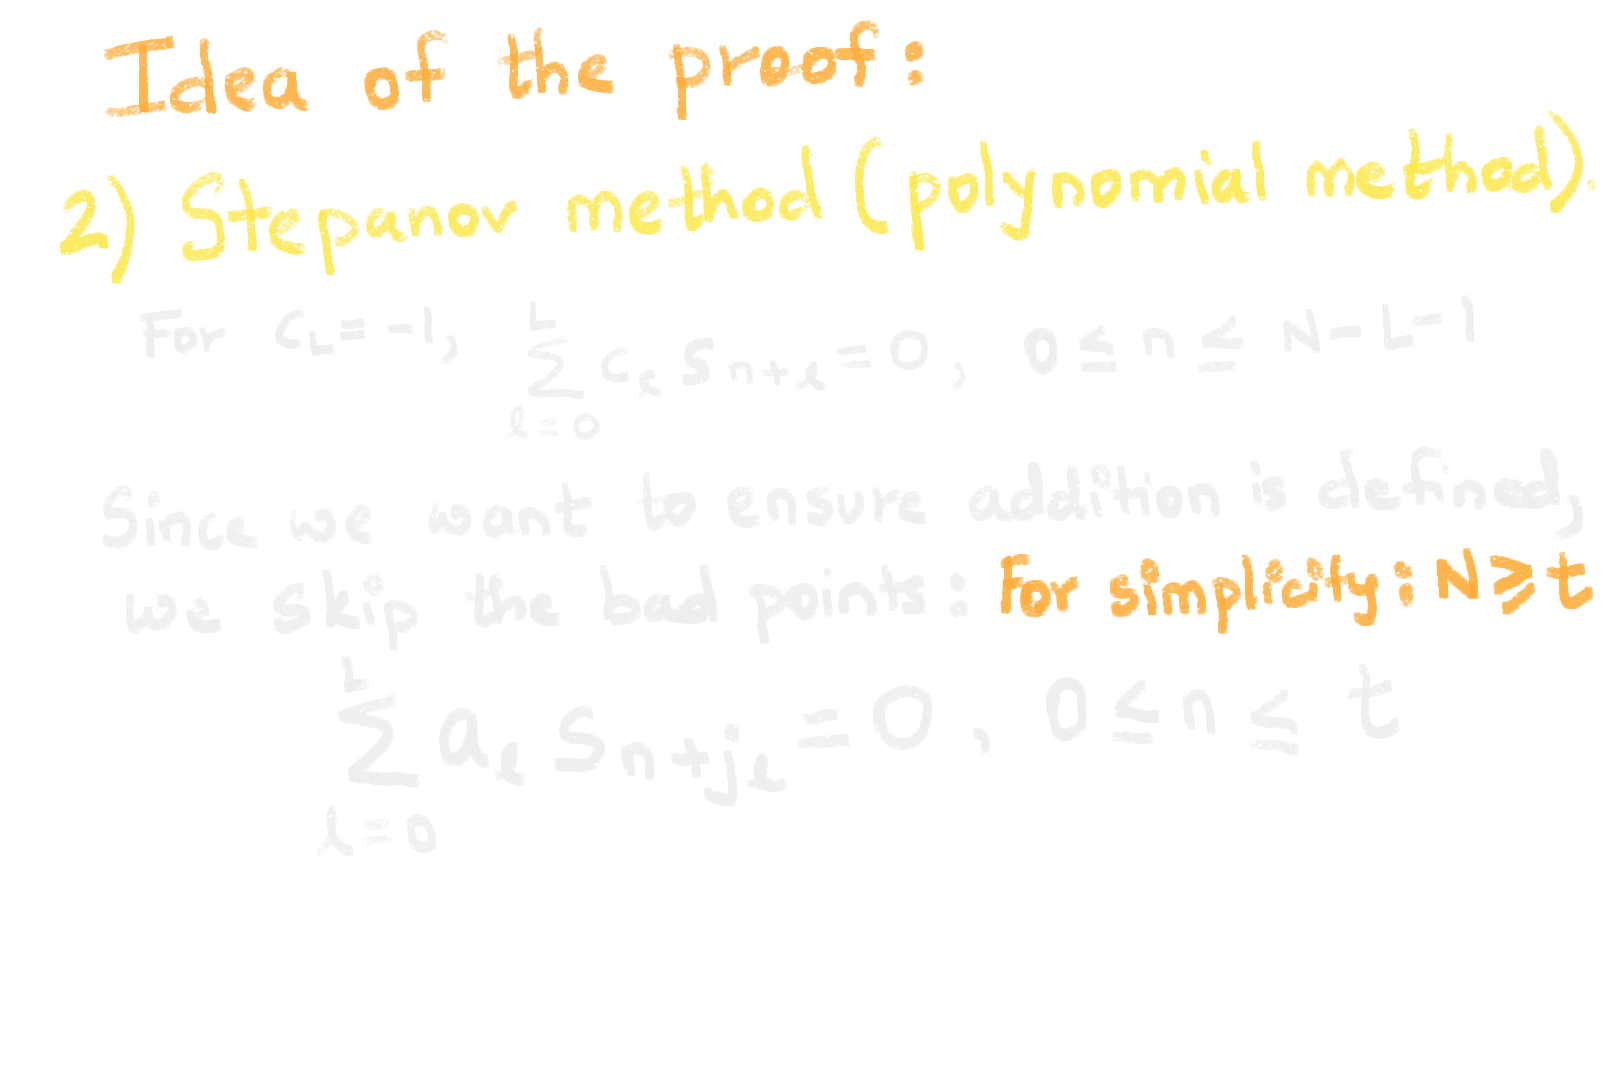 Idea of the proof:
2) Stepanov method (polynomial method).
For c_L = -1, \sum_{l=0}^{L} c_l s_{n+l} = 0, 0 ≤ n ≤ N-L-1
Since we want to ensure addition is defined,
we skip the bad points: For simplicity: N ≥ t
\sum_{l=0}^{L} a_l s_{n+j_l} = 0, 0 ≤ n ≤ t